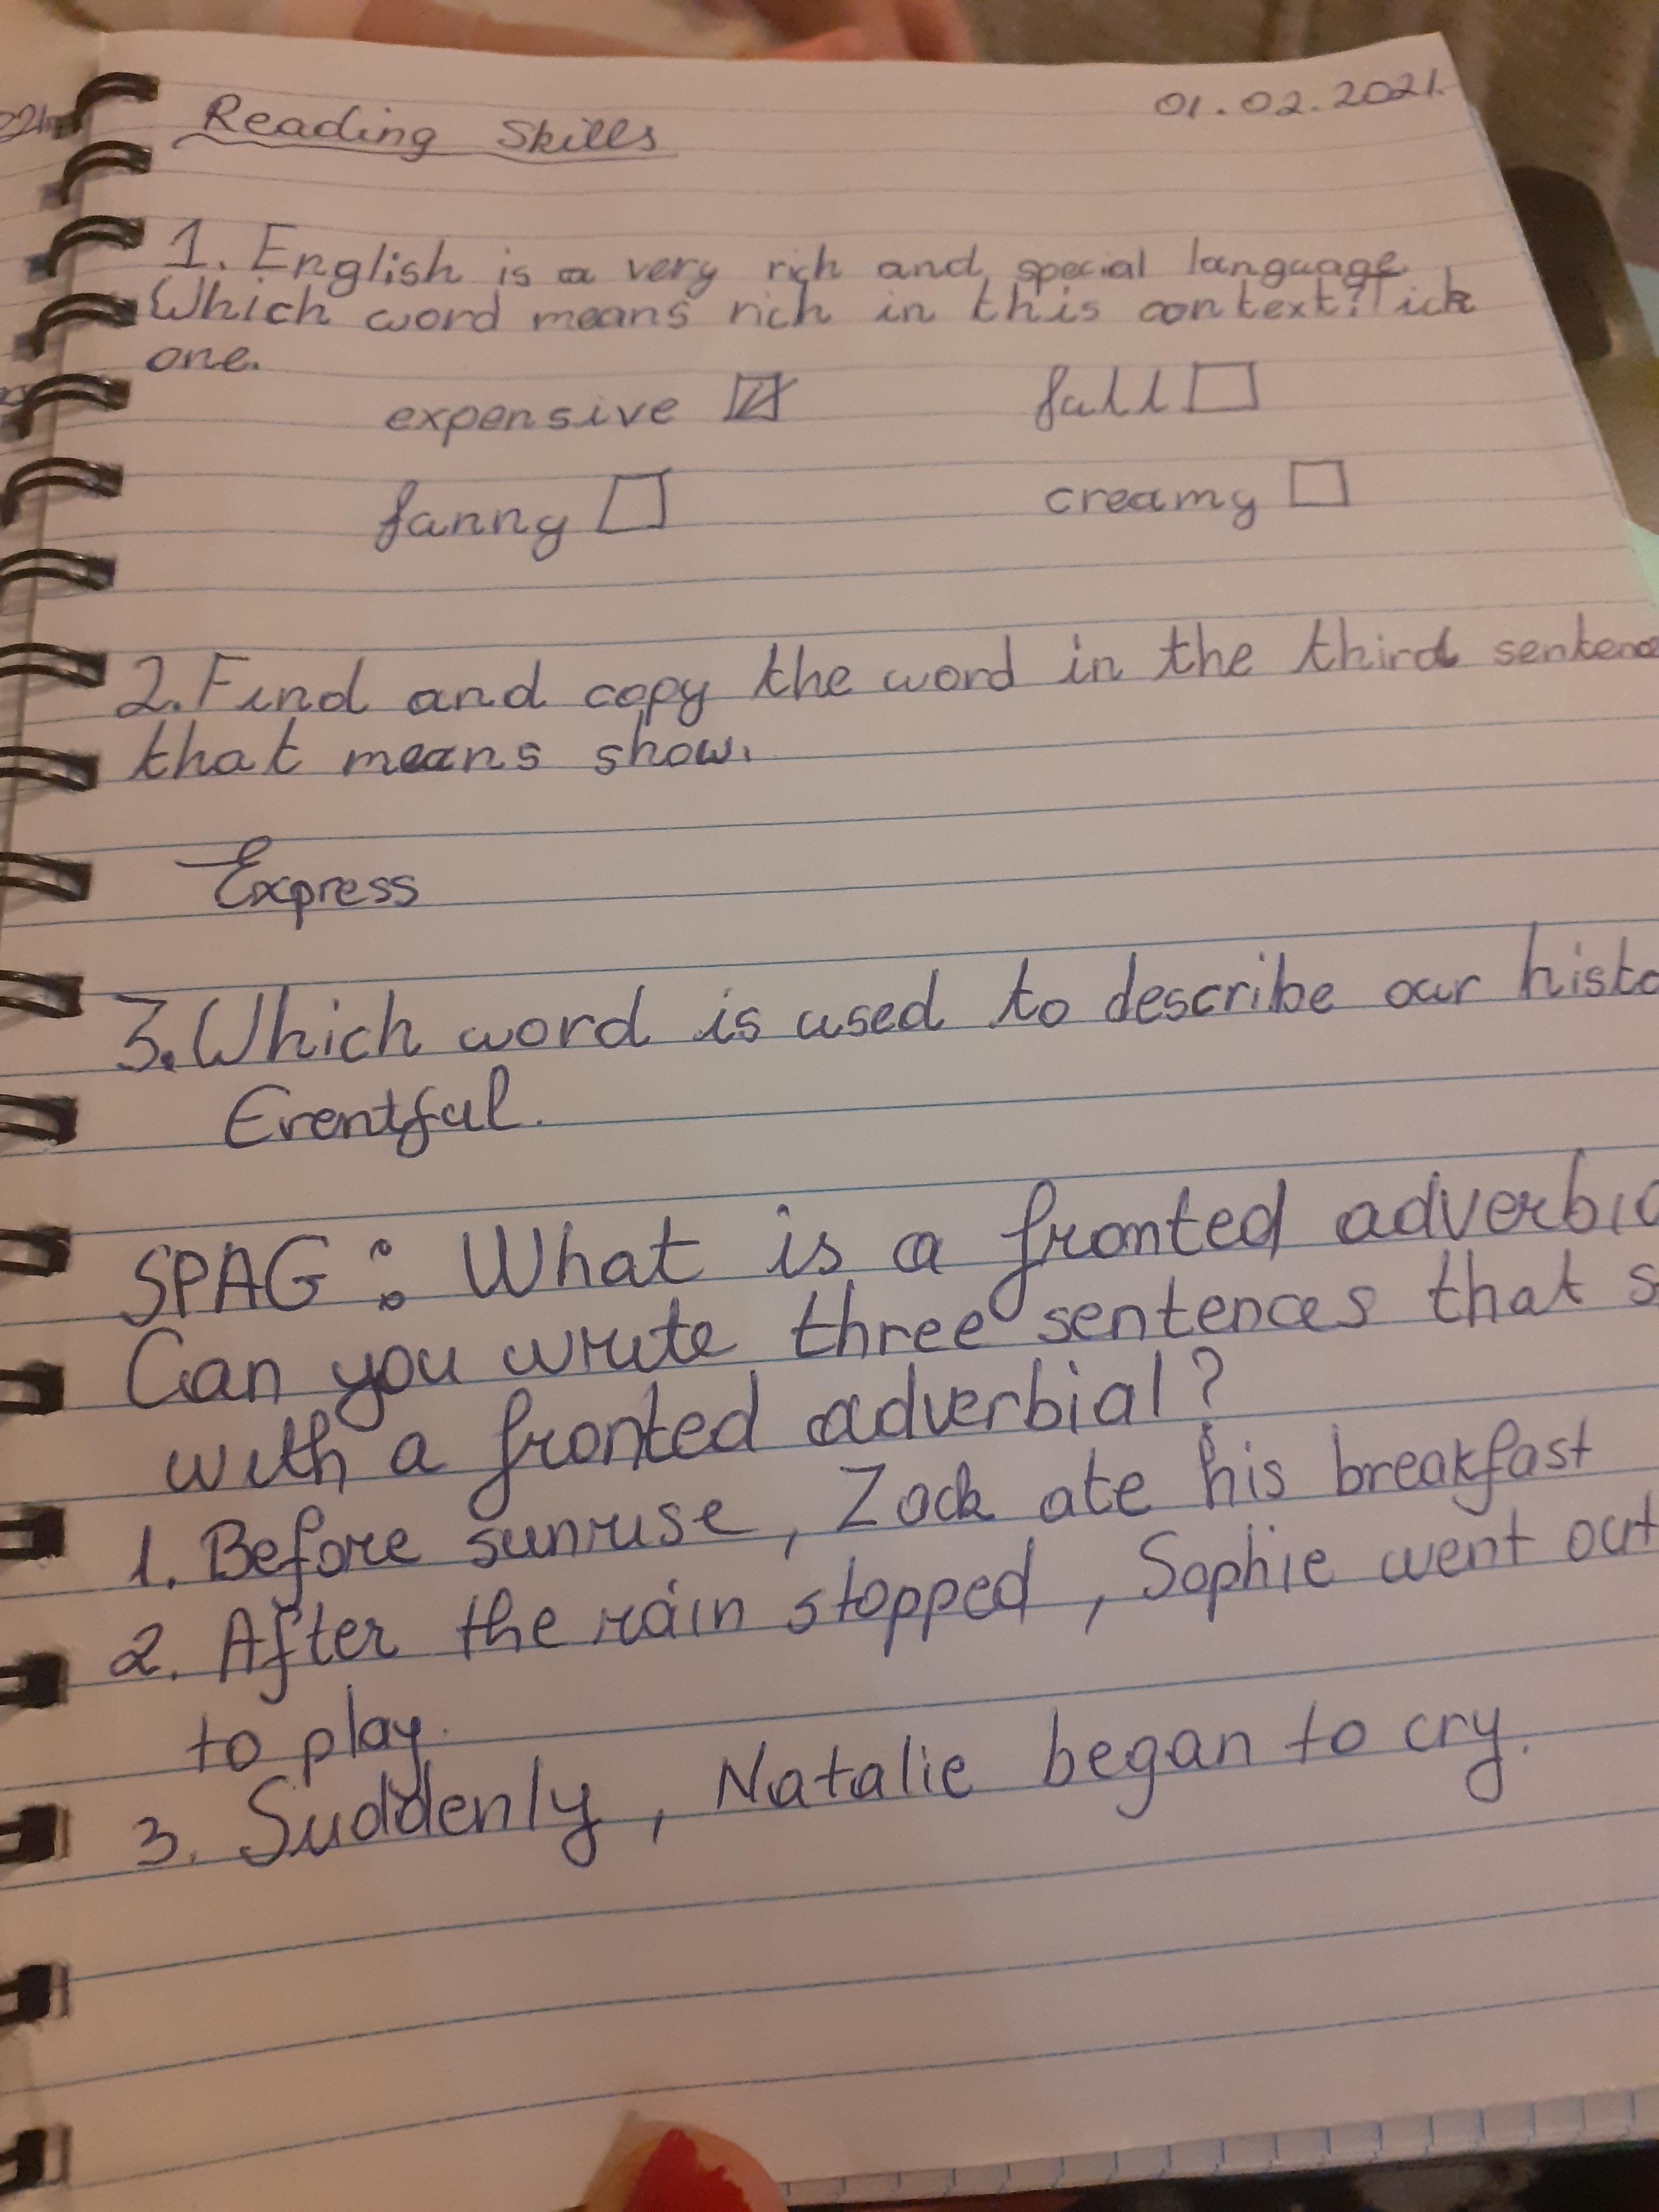 Reading Skills
01.02.2021.
1. English is a very rich and special language.
Which word means rich in this context? Tick
one.
expensive
full
funny
creamy
2. Find and copy the word in the third sentenc
that means show.
Express
3. Which word is used to describe our histo
Eventful.
SPAG: What is a fronted adverbia
Can you write three sentences that s
with a fronted adverbial?
1. Before sunrise, Zack ate his breakfast
2. After the rain stopped, Sophie went out
to play.
3. Suddenly, Natalie began to cry.